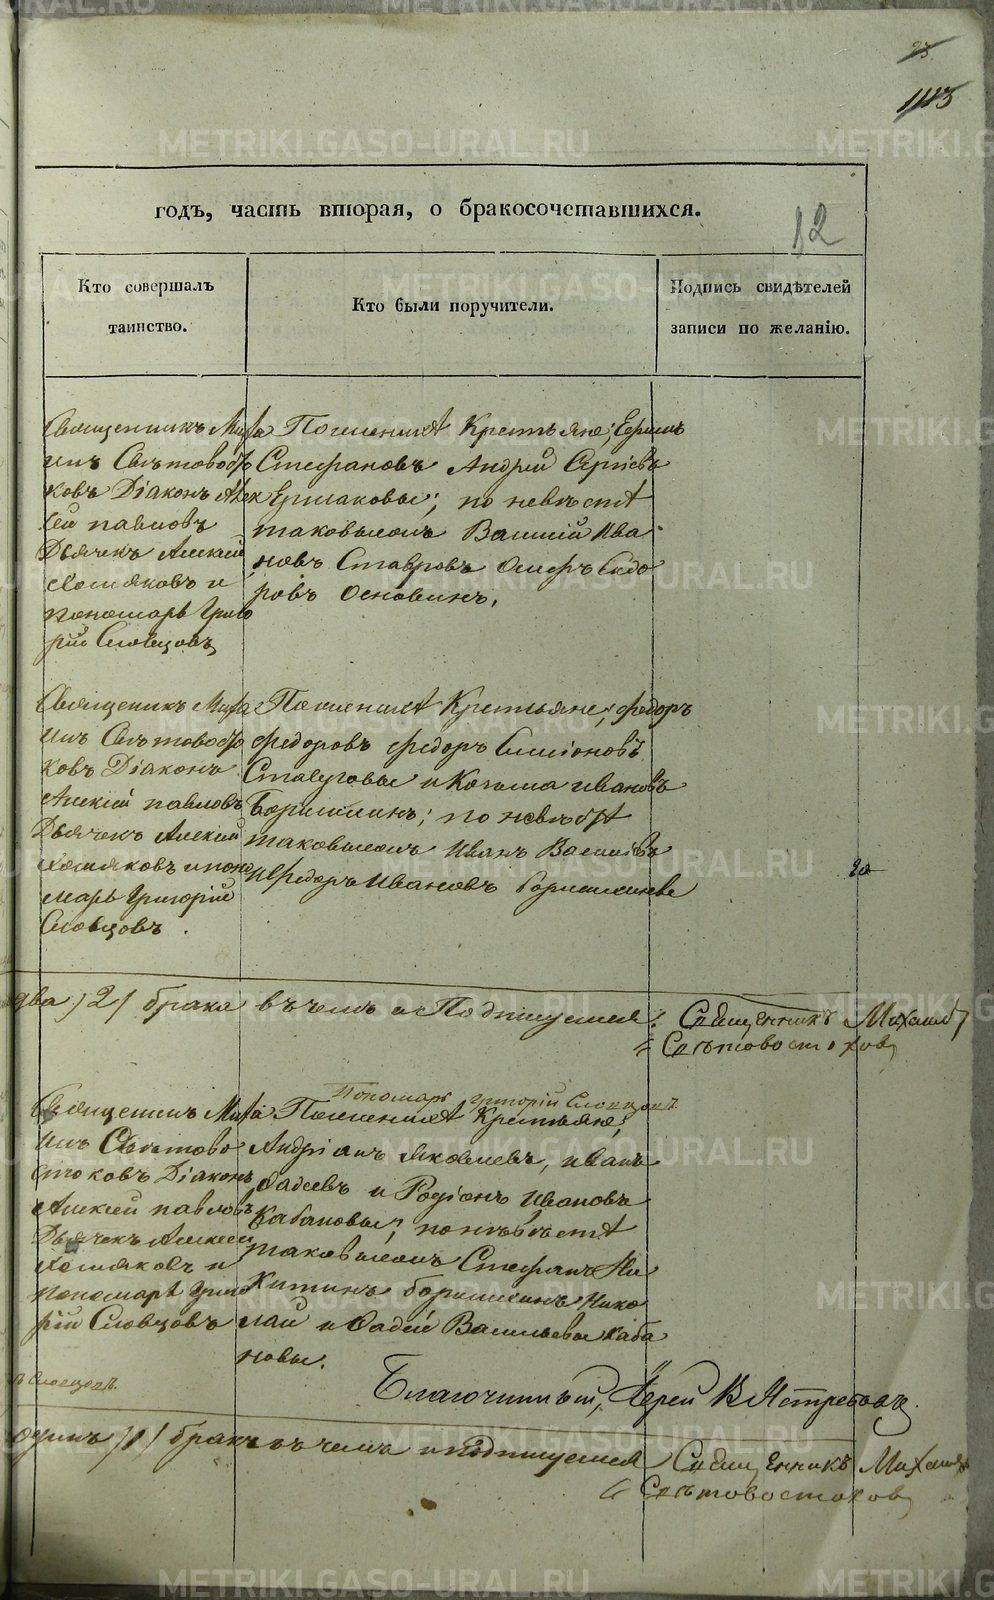 23
1113
METRIKI.GASO-URAL.RU
годъ, часть вторая, о бракосочетавшихся.
12
Кто совершалъ таинство.
Кто были поручители.
Подпись свидѣтелей записи по желанію.
Священникъ Миха
илъ Свѣтовосто
ковъ Діаконъ Алек
сей павловъ
Дьячекъ Алексій
Хомяковъ и
пономарь Григо
рій Словцовъ
По женихѣ Крестьяне; Ефимъ
Стефановъ Андрей Сергіевъ
Ермаковы; по невѣстѣ
таковыжъ Василій Ива
новъ Ставровъ Осифъ Сидо
ровъ Основинъ,
Священикъ Миха
илъ Свѣтовосто
ковъ Діаконъ
Алексій павловъ
Дьячекъ Алексій
Хомяковъ и поно
марь Григорій
Словцовъ.
По женихѣ Крестьяне; федоръ
федоровъ федоръ Симіоновъ
и Козьма ивановъ
по невѣстѣ
Иванъ Василіевъ
и федоръ Ивановъ
два /2/ брака въ чемъ и Подпишуемся: Священникъ Михаилъ
Свѣтовостоковъ
Пономарь Григорій Словцовъ.
Священикъ Миха
илъ Свѣтово
стоковъ Діаконъ
Алексій павловъ
Дьячекъ Алексій
Хомяковъ и
пономарь Григо
рій Словцовъ
По женихѣ Крестьяне;
Андріанъ Яковлевъ, иванъ
фадѣевъ и Родіонъ ивановъ
Кабановы; по невѣстѣ
Стефанъ Ни
китинъ Нико
лай и Фадей Васильевы каба
новы.
Словцовъ.
Благочинный, Іерей В Ястребовъ.
одинъ /1/ бракъ въ чемъ и подпишуемся Священникъ Михаилъ
Свѣтовостоковъ